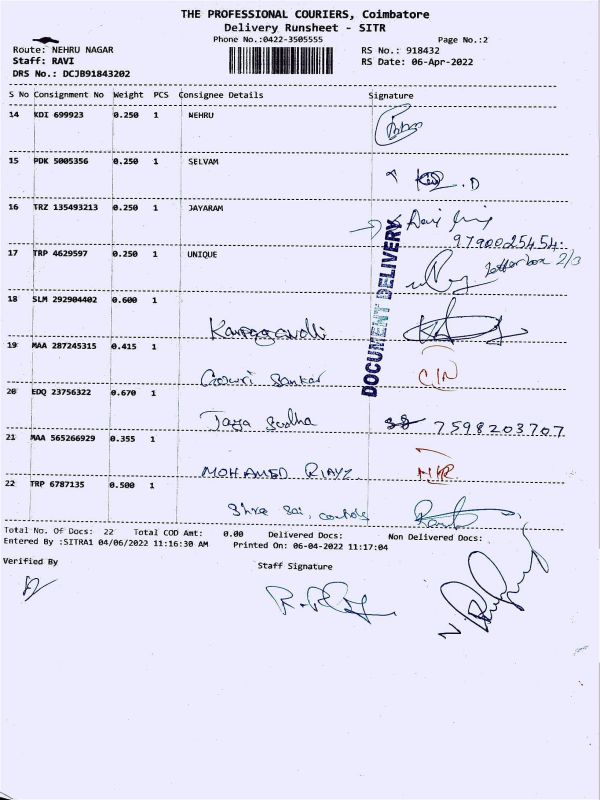 THE PROFESSIONAL COURIERS, Coimbatore
Delivery Runsheet - SITR
Phone No.:0422-3505555
Page No.:2
Route: NEHRU NAGAR
RS No.: 918432
Staff: RAVI
RS Date: 06-Apr-2022
DRS No.: DCJB91843202
S No Consignment No Weight PCS Consignee Details Signature
14 KDI 699923 0.250 1 NEHRU
15 PDK 5005356 0.250 1 SELVAM
16 TRZ 135493213 0.250 1 JAYARAM
9790025454
17 TRP 4629597 0.250 1 UNIQUE
Letter box 2/3
DOCUMENT DELIVERY
18 SLM 292904402 0.600 1
19 MAA 287245315 0.415 1
Gowri Sankar
20 EDQ 23756322 0.670 1
Sudha 7598203707
21 MAA 565266929 0.355 1
MOHAMED RIAYZ
22 TRP 6787135 0.500 1
Shree Sai
Total No. Of Docs: 22 Total COD Amt: 0.00 Delivered Docs: Non Delivered Docs:
Entered By :SITRA1 04/06/2022 11:16:30 AM Printed On: 06-04-2022 11:17:04
Verified By
Staff Signature